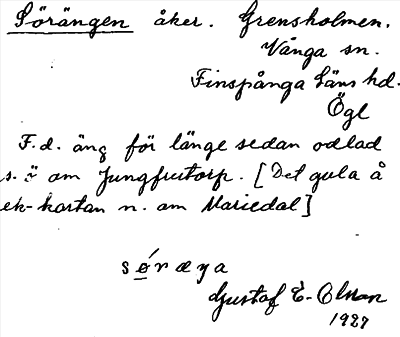 Sörängen åker. Grensholmen.
Vånga sn.
Finspånga Läns hd.
Ögl
F.d. äng för länge sedan odlad
s. ö om Jungfrutorp. [Det gula å
ek-kartan n. om Mariedal]
sǿræŋa
Gustaf E. Olsson
1927